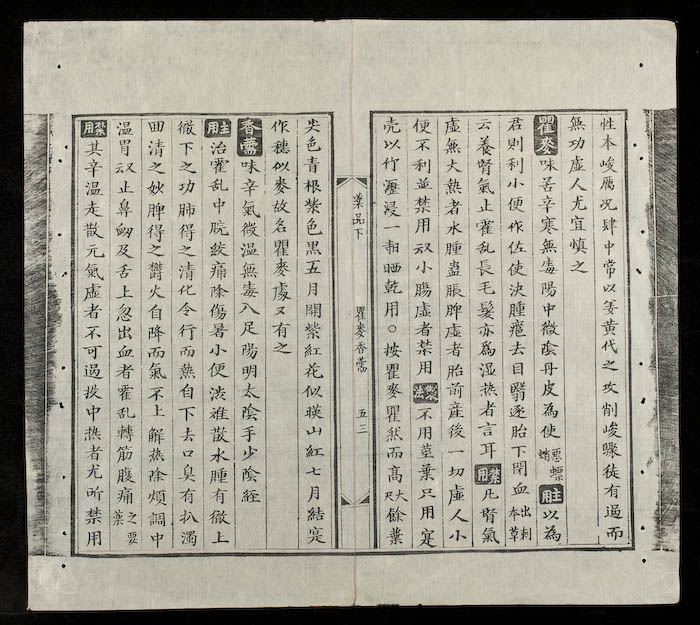 性本峻厲况肆中常以姜黄代之攻削峻驟徒有過而
無功虚人尤宜慎之
瞿麥味苦辛寒無毒陽中微陰丹皮為使惡螵蛸主用以為
君則利小便作佐使決腫癰去目翳逐胎下閉血出刺本草
云養腎氣止霍乱長毛髮亦為湿热者言耳禁用凡腎氣
虚無大熱者水腫蠱脹脾虚者胎前産後一切虚人小
便不利並禁用叹小腸虚者禁用製法不用莖葉只用寔
壳以竹瀝浸一時晒乾用○按瞿麥瞿然而髙大尺餘葉
尖色青根紫色黒五月開紫紅花似暎山紅七月結寔
作穗似麥故名瞿麥處又有之
香薷味辛氣微温無毒入足陽明太陰手少陰経
主用治霍乱中脘絞痛除傷暑小便渋难散水腫有徹上
徹下之功肺得之清化令行而熱自下去口臭有扒濁
囬清之妙脾得之欝火自降而氣不上解热除煩調中
温胃叹止鼻衂及舌上忽出血者霍乱轉筋腹痛之要藥
禁用其辛温走散元氣虚者不可過投中热者尤所禁用
藥品下
瞿麥香薷
五三